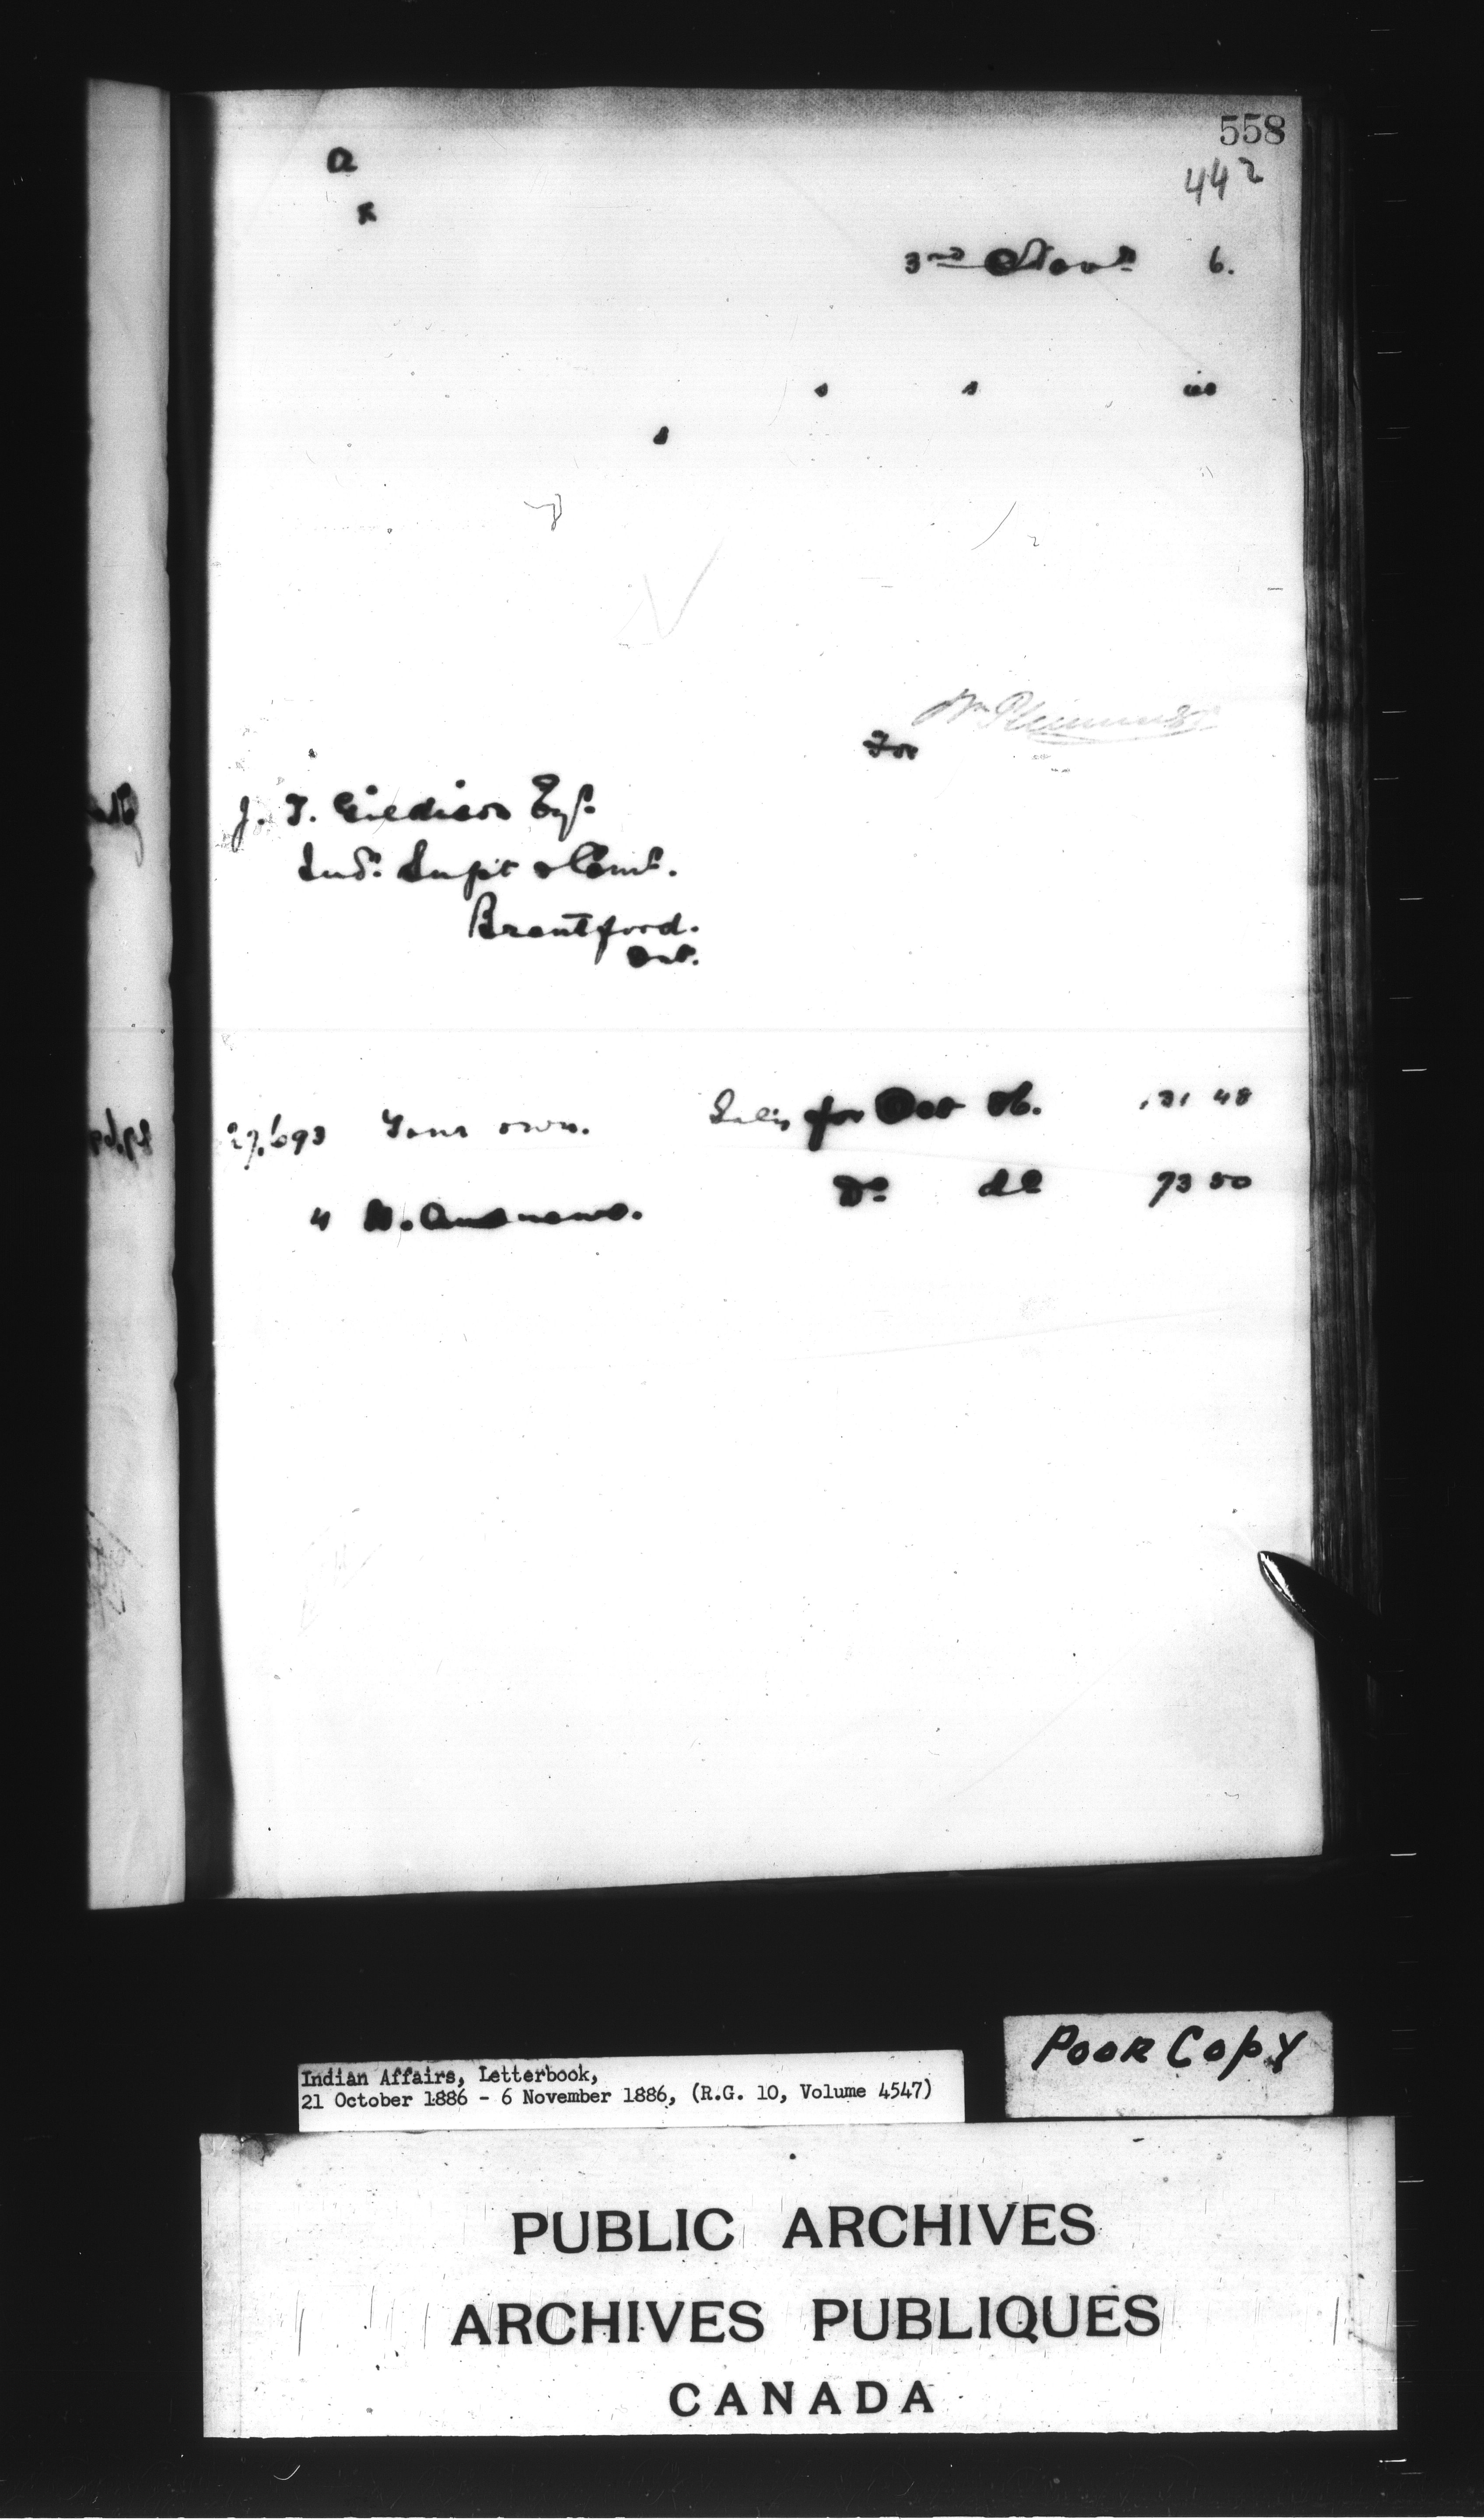 558
442
a
x
3rd Novr 6.
s s es
s
For
J. T. Gilkison Esq.
Ind. Supt & Comr.
Brantford.
Ont.
27,693 Your own. Saly for Oct 86. 131 48
" W. Andrews. Do do 73 50
Indian Affairs, Letterbook,
21 October 1886 - 6 November 1886, (R.G. 10, Volume 4547)
POOR COPY
PUBLIC ARCHIVES
ARCHIVES PUBLIQUES
CANADA